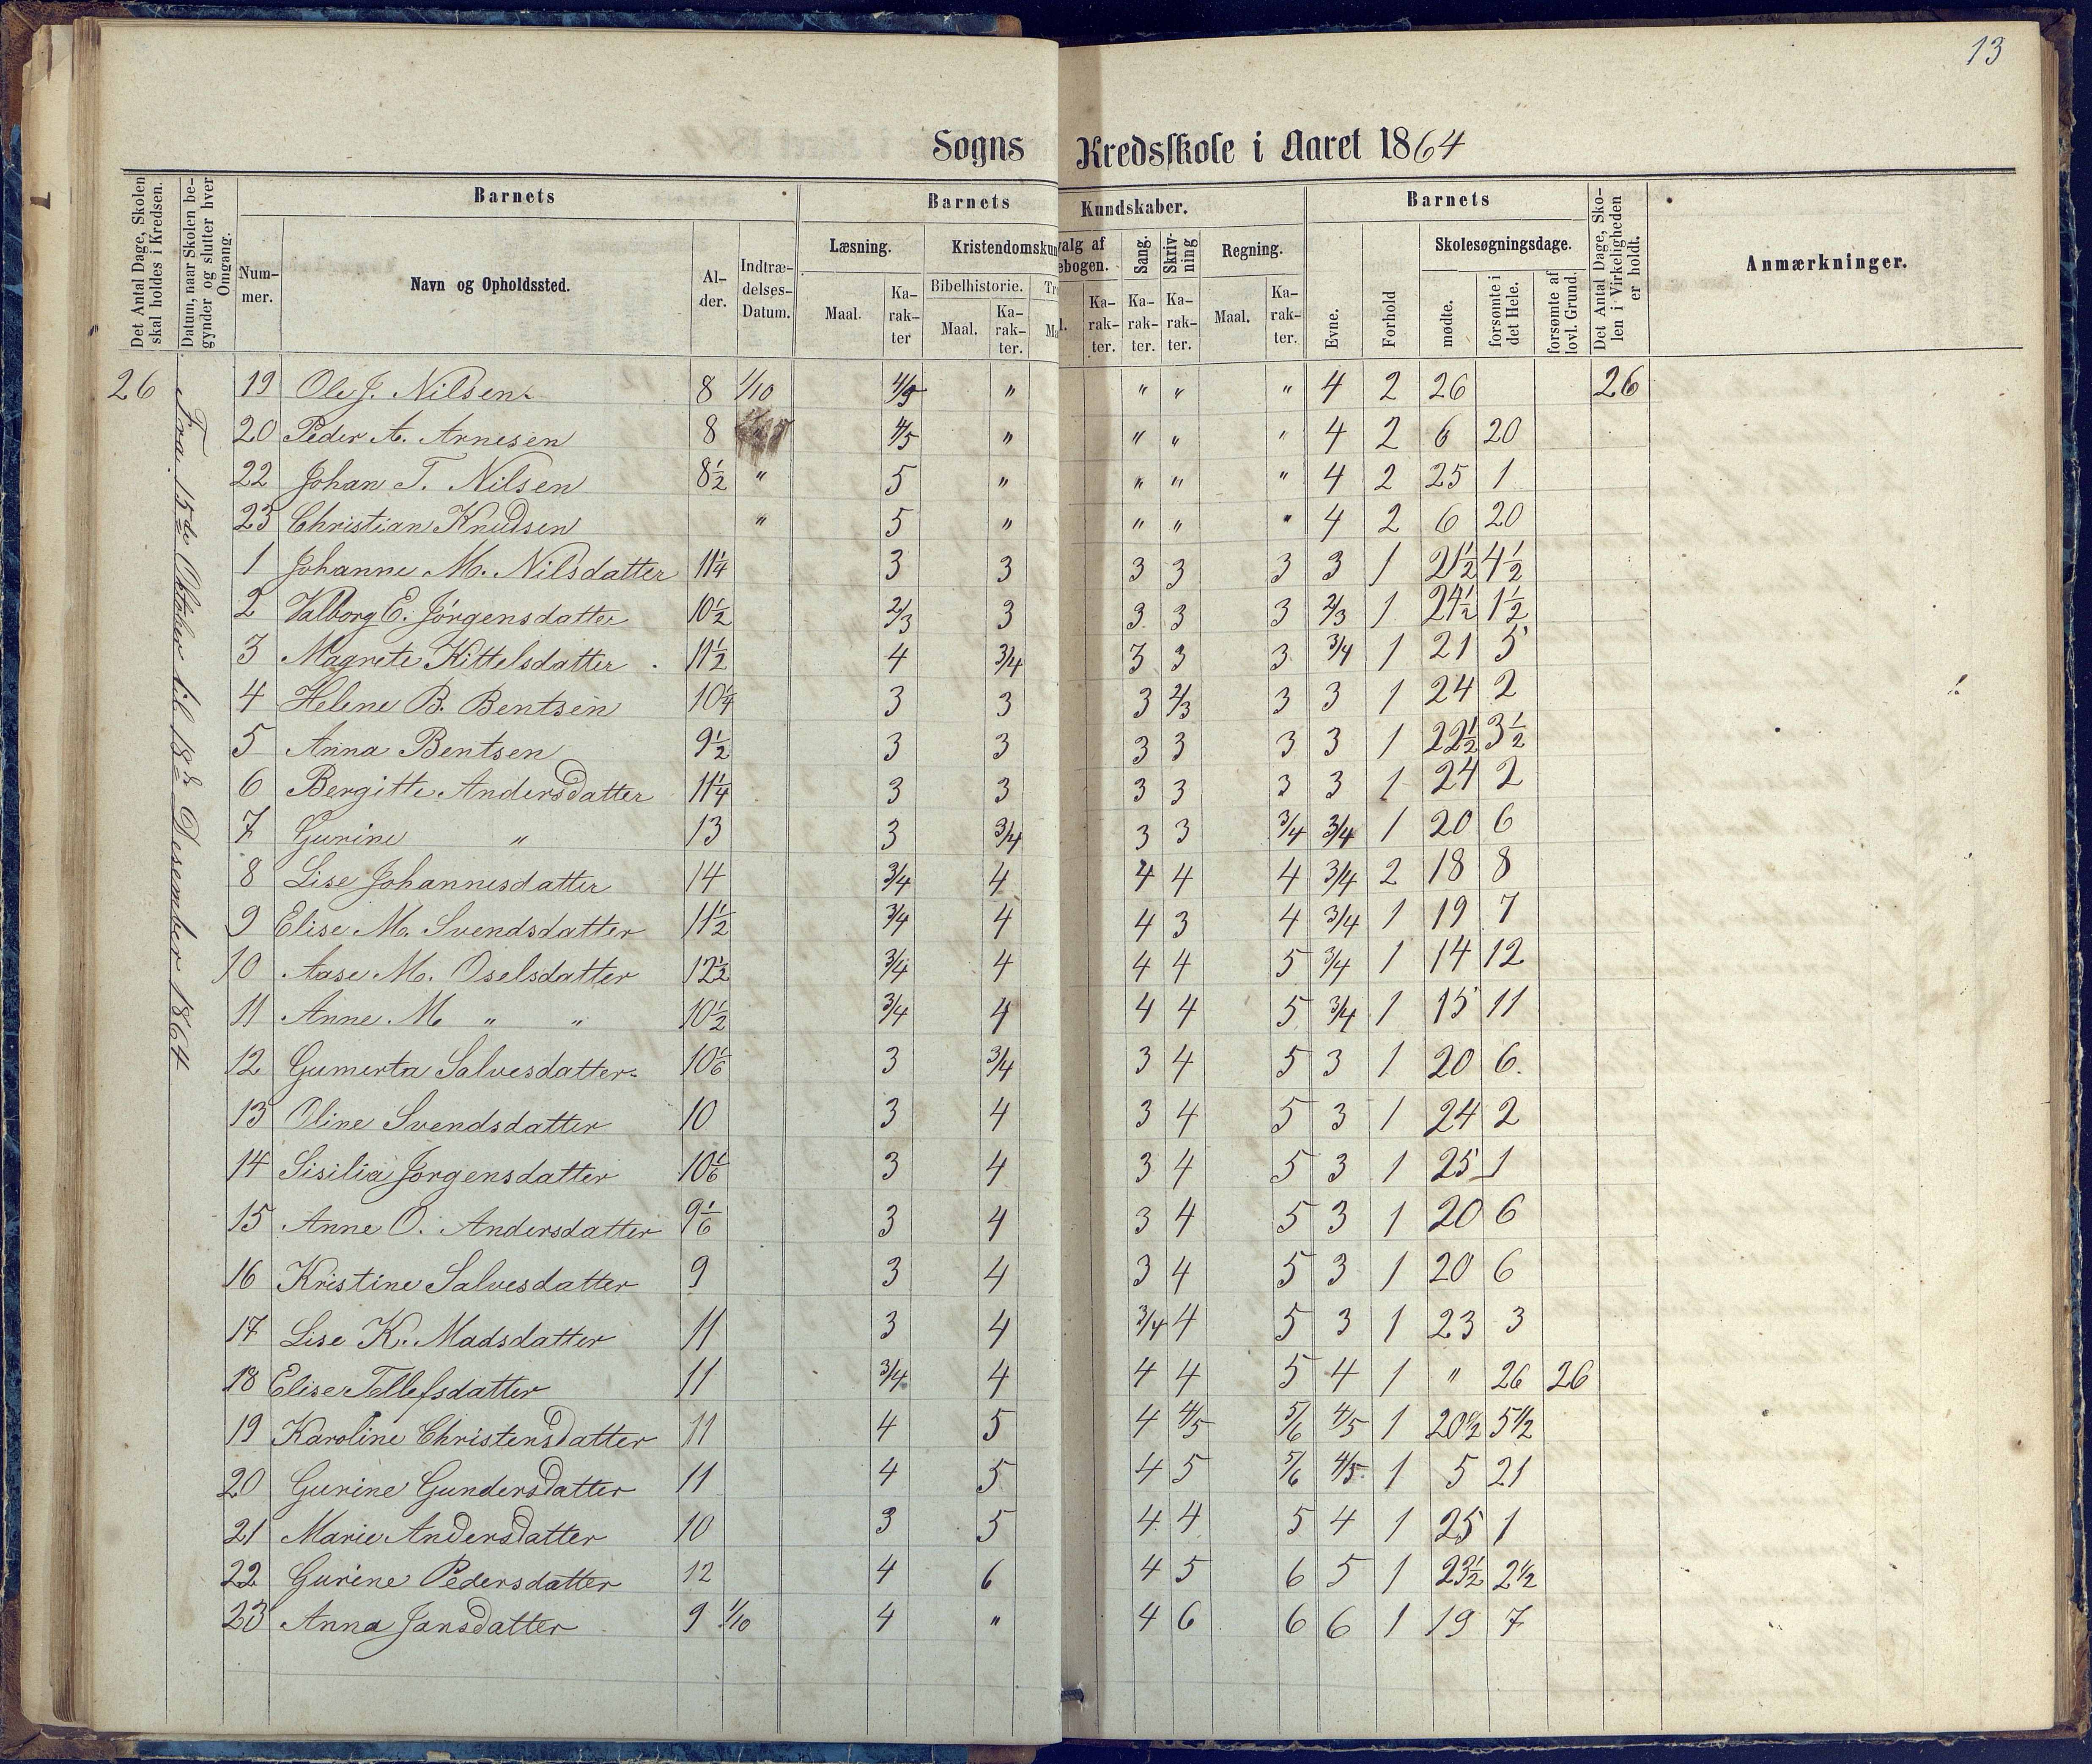 13
Sogns Kredsskole i Aaret 1864
Det Antal Dage, Skolen skal holdes i Kredsen.
Datum, naar Skolen begynder og slutter hver Omgang.
Barnets
Barnets Kundskaber.
Barnets
Det Antal Dage, Skolen i Virkeligheden er holdt.
Anmærkninger.
Nummer.
Navn og Opholdssted.
Alder.
Indtrædelses-Datum.
Læsning.
Kristendomskun
valg af
ebogen.
Sang.
Skrivning
Regning.
Evne.
Forhold
Skolesøgningsdage.
Maal.
Karakter
Bibelhistorie.
Maal.
Karakter.
Tr
Ma
l.
Karakter.
Karakter.
Karakter.
Maal.
Karakter.
mødte.
forsømte i det Hele.
forsømte af lovl. Grund.
Fra 15de Oktober til 18de Desember 1864
26 19 Ole J. Nilsen 8 1/10 4/5 " " " " 4 2 26 26
20 Peder A. Arnesen 8 4/5 " " " " 4 2 6 20
22 Johan T. Nilsen 8½ " 5 " " " " 4 2 25 1
23 Christian Knudsen " 5 " " " " 4 2 6 20
1 Johanne M. Nilsdatter 11¼ 3 3 3 3 3 3 1 21½ 4½
2 Valborg E. Jørgensdatter 10½ 2/3 3 3 3 3 2/3 1 24½ 1½
3 Magrete Kittelsdatter 11½ 4 3/4 3 3 3 3/4 1 21 5
4 Helene B. Bentsen 10¼ 3 3 3 2/3 3 3 1 24 2
5 Anna Bentsen 9½ 3 3 3 3 3 3 1 22½ 3½
6 Bergitte Andersdatter 11¼ 3 3 3 3 3 3 1 24 2
7 Gurine " 13 3 3/4 3 3 3/4 3/4 1 20 6
8 Lise Johannesdatter 14 3/4 4 4 4 4 3/4 2 18 8
9 Elise M. Svendsdatter 11½ 3/4 4 4 3 4 3/4 1 19 7
10 Aase M. Oselsdatter 12½ 3/4 4 4 4 5 3/4 1 14 12
11 Anne M " " 10½ 3/4 4 4 4 5 3/4 1 15 11
12 Gumerta Salvesdatter 10 1/6 3 3/4 3 4 5 3 1 20 6.
13 Oline Svendsdatter 10 3 4 3 4 5 3 1 24 2
14 Sisilia Jørgensdatter 10 1/6 3 4 3 4 5 3 1 25 1
15 Anne O. Andersdatter 9 1/6 3 4 3 4 5 3 1 20 6
16 Kristine Salvesdatter 9 3 4 3 4 5 3 1 20 6
17 Lise K. Madsdatter 11 3 4 3/4 4 5 3 1 23 3
18 Elise Tellefsdatter 11 3/4 4 4 4 5 4 1 " 26 26
19 Karoline Christensdatter 11 4 5 4 4/5 5/6 4/5 1 20½ 5½
20 Gurine Gundersdatter 11 4 5 4 5 5/6 4/5 1 5 21
21 Marie Andersdatter 10 3 5 4 4 5 4 1 25 1
22 Gurine Pedersdatter 12 4 6 4 5 6 5 1 23½ 2½
23 Anna Jansdatter 9 1/10 4 " 4 6 6 6 1 19 7